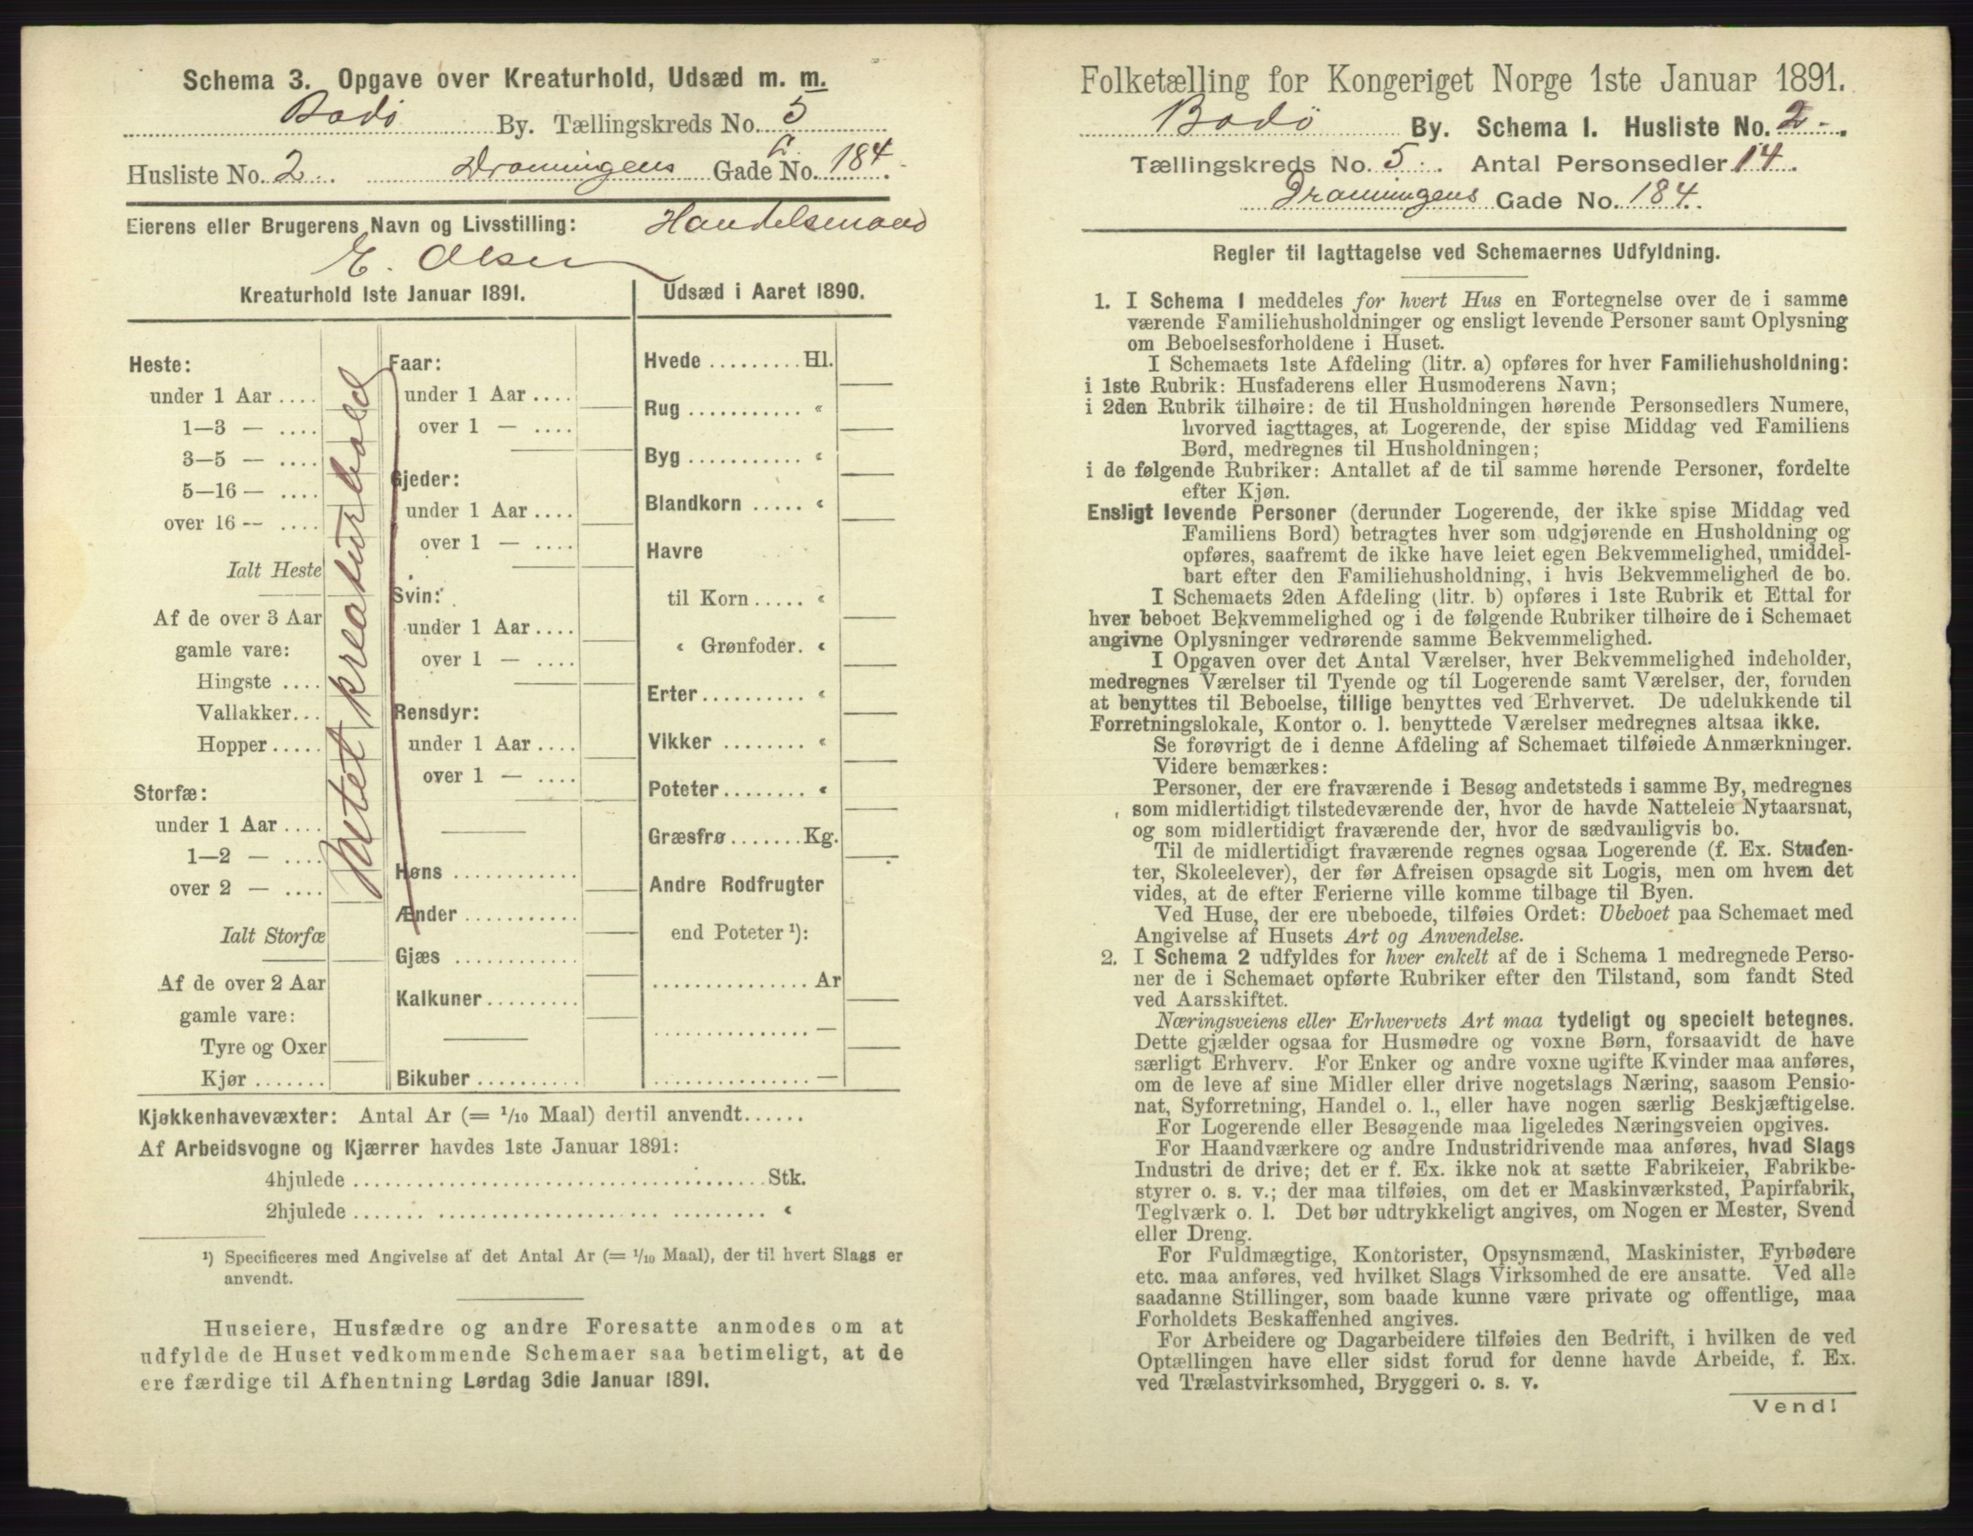 Schema 3. Opgave over Kreaturhold, Udsæd m. m.
Bodö By. Tællingskreds No. 5
Husliste No. 2 Dronningens Gade No. 184.
Eierens eller Brugerens Navn og Livsstilling: Handelsmand
E. Olsen
Kreaturhold 1ste Januar 1891.
Heste:
under 1 Aar....
1—3 — ....
3—5 — ....
5—16 — ....
over 16 -- ....
Ialt Heste
Af de over 3 Aar
gamle vare:
Hingste ....
Vallakker...
Hopper.....
Storfæ:
under 1 Aar....
1—2 — ....
over 2 — ....
Ialt Storfæ
Af de over 2 Aar
gamle vare:
Tyre og Oxer
Kjør .......
Intet kreaturhold
Faar:
under 1 Aar....
over 1 — ....
Gjeder:
under 1 Aar....
over 1 — ....
Svin:
under 1 Aar....
over 1 — ....
Rensdyr:
under 1 Aar....
over 1 — ....
Høns ............
Ænder ...........
Gjæs ............
Kalkuner.........
Bikuber..........
Udsæd i Aaret 1890.
Hvede ......... Hl.
Rug ........... “
Byg ........... “
Blandkorn ..... “
Havre
til Korn ..... “
“ Grønfoder. “
Erter.......... “
Vikker ........ “
Poteter........ “
Græsfrø....... Kg.
Andre Rodfrugter
end Poteter ¹):
............... Ar
............... —
............... —
Kjøkkenhavevæxter: Antal Ar (= 1/10 Maal) dertil anvendt......
Af Arbeidsvogne og Kjærrer havdes 1ste Januar 1891:
4hjulede ........................................ Stk.
2hjulede ........................................ “
¹) Specificeres med Angivelse af det Antal Ar (= 1/10 Maal), der til hvert Slags er
anvendt.
Huseiere, Husfædre og andre Foresatte anmodes om at
udfylde de Huset vedkommende Schemaer saa betimeligt, at de
ere færdige til Afhentning Lørdag 3die Januar 1891.
Folketælling for Kongeriget Norge 1ste Januar 1891.
Bodö By. Schema 1. Husliste No. 2
Tællingskreds No. 5. Antal Personsedler 14.
Dronningens Gade No. 184.
Regler til Iagttagelse ved Schemaernes Udfyldning.
1. I Schema 1 meddeles for hvert Hus en Fortegnelse over de i samme
værende Familiehusholdninger og ensligt levende Personer samt Oplysning
om Beboelsesforholdene i Huset.
I Schemaets 1ste Afdeling (litr. a) opføres for hver Familiehusholdning:
i 1ste Rubrik: Husfaderens eller Husmoderens Navn;
i 2den Rubrik tilhøire: de til Husholdningen hørende Personsedlers Numere,
hvorved iagttages, at Logerende, der spise Middag ved Familiens
Bord, medregnes til Husholdningen;
i de følgende Rubriker: Antallet af de til samme hørende Personer, fordelte
efter Kjøn.
Ensligt levende Personer (derunder Logerende, der ikke spise Middag ved
Familiens Bord) betragtes hver som udgjørende en Husholdning og
opføres, saafremt de ikke have leiet egen Bekvemmelighed, umiddel-
bart efter den Familiehusholdning, i hvis Bekvemmelighed de bo.
I Schemaets 2den Afdeling (litr. b) opføres i 1ste Rubrik et Ettal for
hver beboet Bekvemmelighed og i de følgende Rubriker tilhøire de i Schemaet
angivne Oplysninger vedrørende samme Bekvemmelighed.
I Opgaven over det Antal Værelser, hver Bekvemmelighed indeholder,
medregnes Værelser til Tyende og til Logerende samt Værelser, der, foruden
at benyttes til Beboelse, tillige benyttes ved Erhvervet. De udelukkende til
Forretningslokale, Kontor o. l. benyttede Værelser medregnes altsaa ikke.
Se forøvrigt de i denne Afdeling af Schemaet tilføiede Anmærkninger.
Videre bemærkes:
Personer, der ere fraværende i Besøg andetsteds i samme By, medregnes
som midlertidigt tilstedeværende der, hvor de havde Natteleie Nytaarsnat,
og som midlertidigt fraværende der, hvor de sædvanligvis bo.
Til de midlertidigt fraværende regnes ogsaa Logerende (f. Ex. Studen-
ter, Skoleelever), der før Afreisen opsagde sit Logis, men om hvem det
vides, at de efter Ferierne ville komme tilbage til Byen.
Ved Huse, der ere ubeboede, tilføies Ordet: Ubeboet paa Schemaet med
Angivelse af Husets Art og Anvendelse.
2. I Schema 2 udfyldes for hver enkelt af de i Schema 1 medregnede Perso-
ner de i Schemaet opførte Rubriker efter den Tilstand, som fandt Sted
ved Aarsskiftet.
Næringsveiens eller Erhvervets Art maa tydeligt og specielt betegnes.
Dette gjælder ogsaa for Husmødre og voxne Børn, forsaavidt de have
særligt Erhverv. For Enker og andre voxne ugifte Kvinder maa anføres,
om de leve af sine Midler eller drive nogetslags Næring, saasom Pensio-
nat, Syforretning, Handel o. l., eller have nogen særlig Beskjæftigelse.
For Logerende eller Besøgende maa ligeledes Næringsveien opgives.
For Haandværkere og andre Industridrivende maa anføres, hvad Slags
Industri de drive; det er f. Ex. ikke nok at sætte Fabrikeier, Fabrikbe-
styrer o. s. v.; der maa tilføies, om det er Maskinværksted, Papirfabrik,
Teglværk o. l. Det bør udtrykkeligt angives, om Nogen er Mester, Svend
eller Dreng.
For Fuldmægtige, Kontorister, Opsynsmænd, Maskinister, Fyrbødere
etc. maa anføres, ved hvilket Slags Virksomhed de ere ansatte. Ved alle
saadanne Stillinger, som baade kunne være private og offentlige, maa
Forholdets Beskaffenhed angives.
For Arbeidere og Dagarbeidere tilføies den Bedrift, i hvilken de ved
Optællingen have eller sidst forud for denne havde Arbeide, f. Ex.
ved Trælastvirksomhed, Bryggeri o. s. v.
Vend!